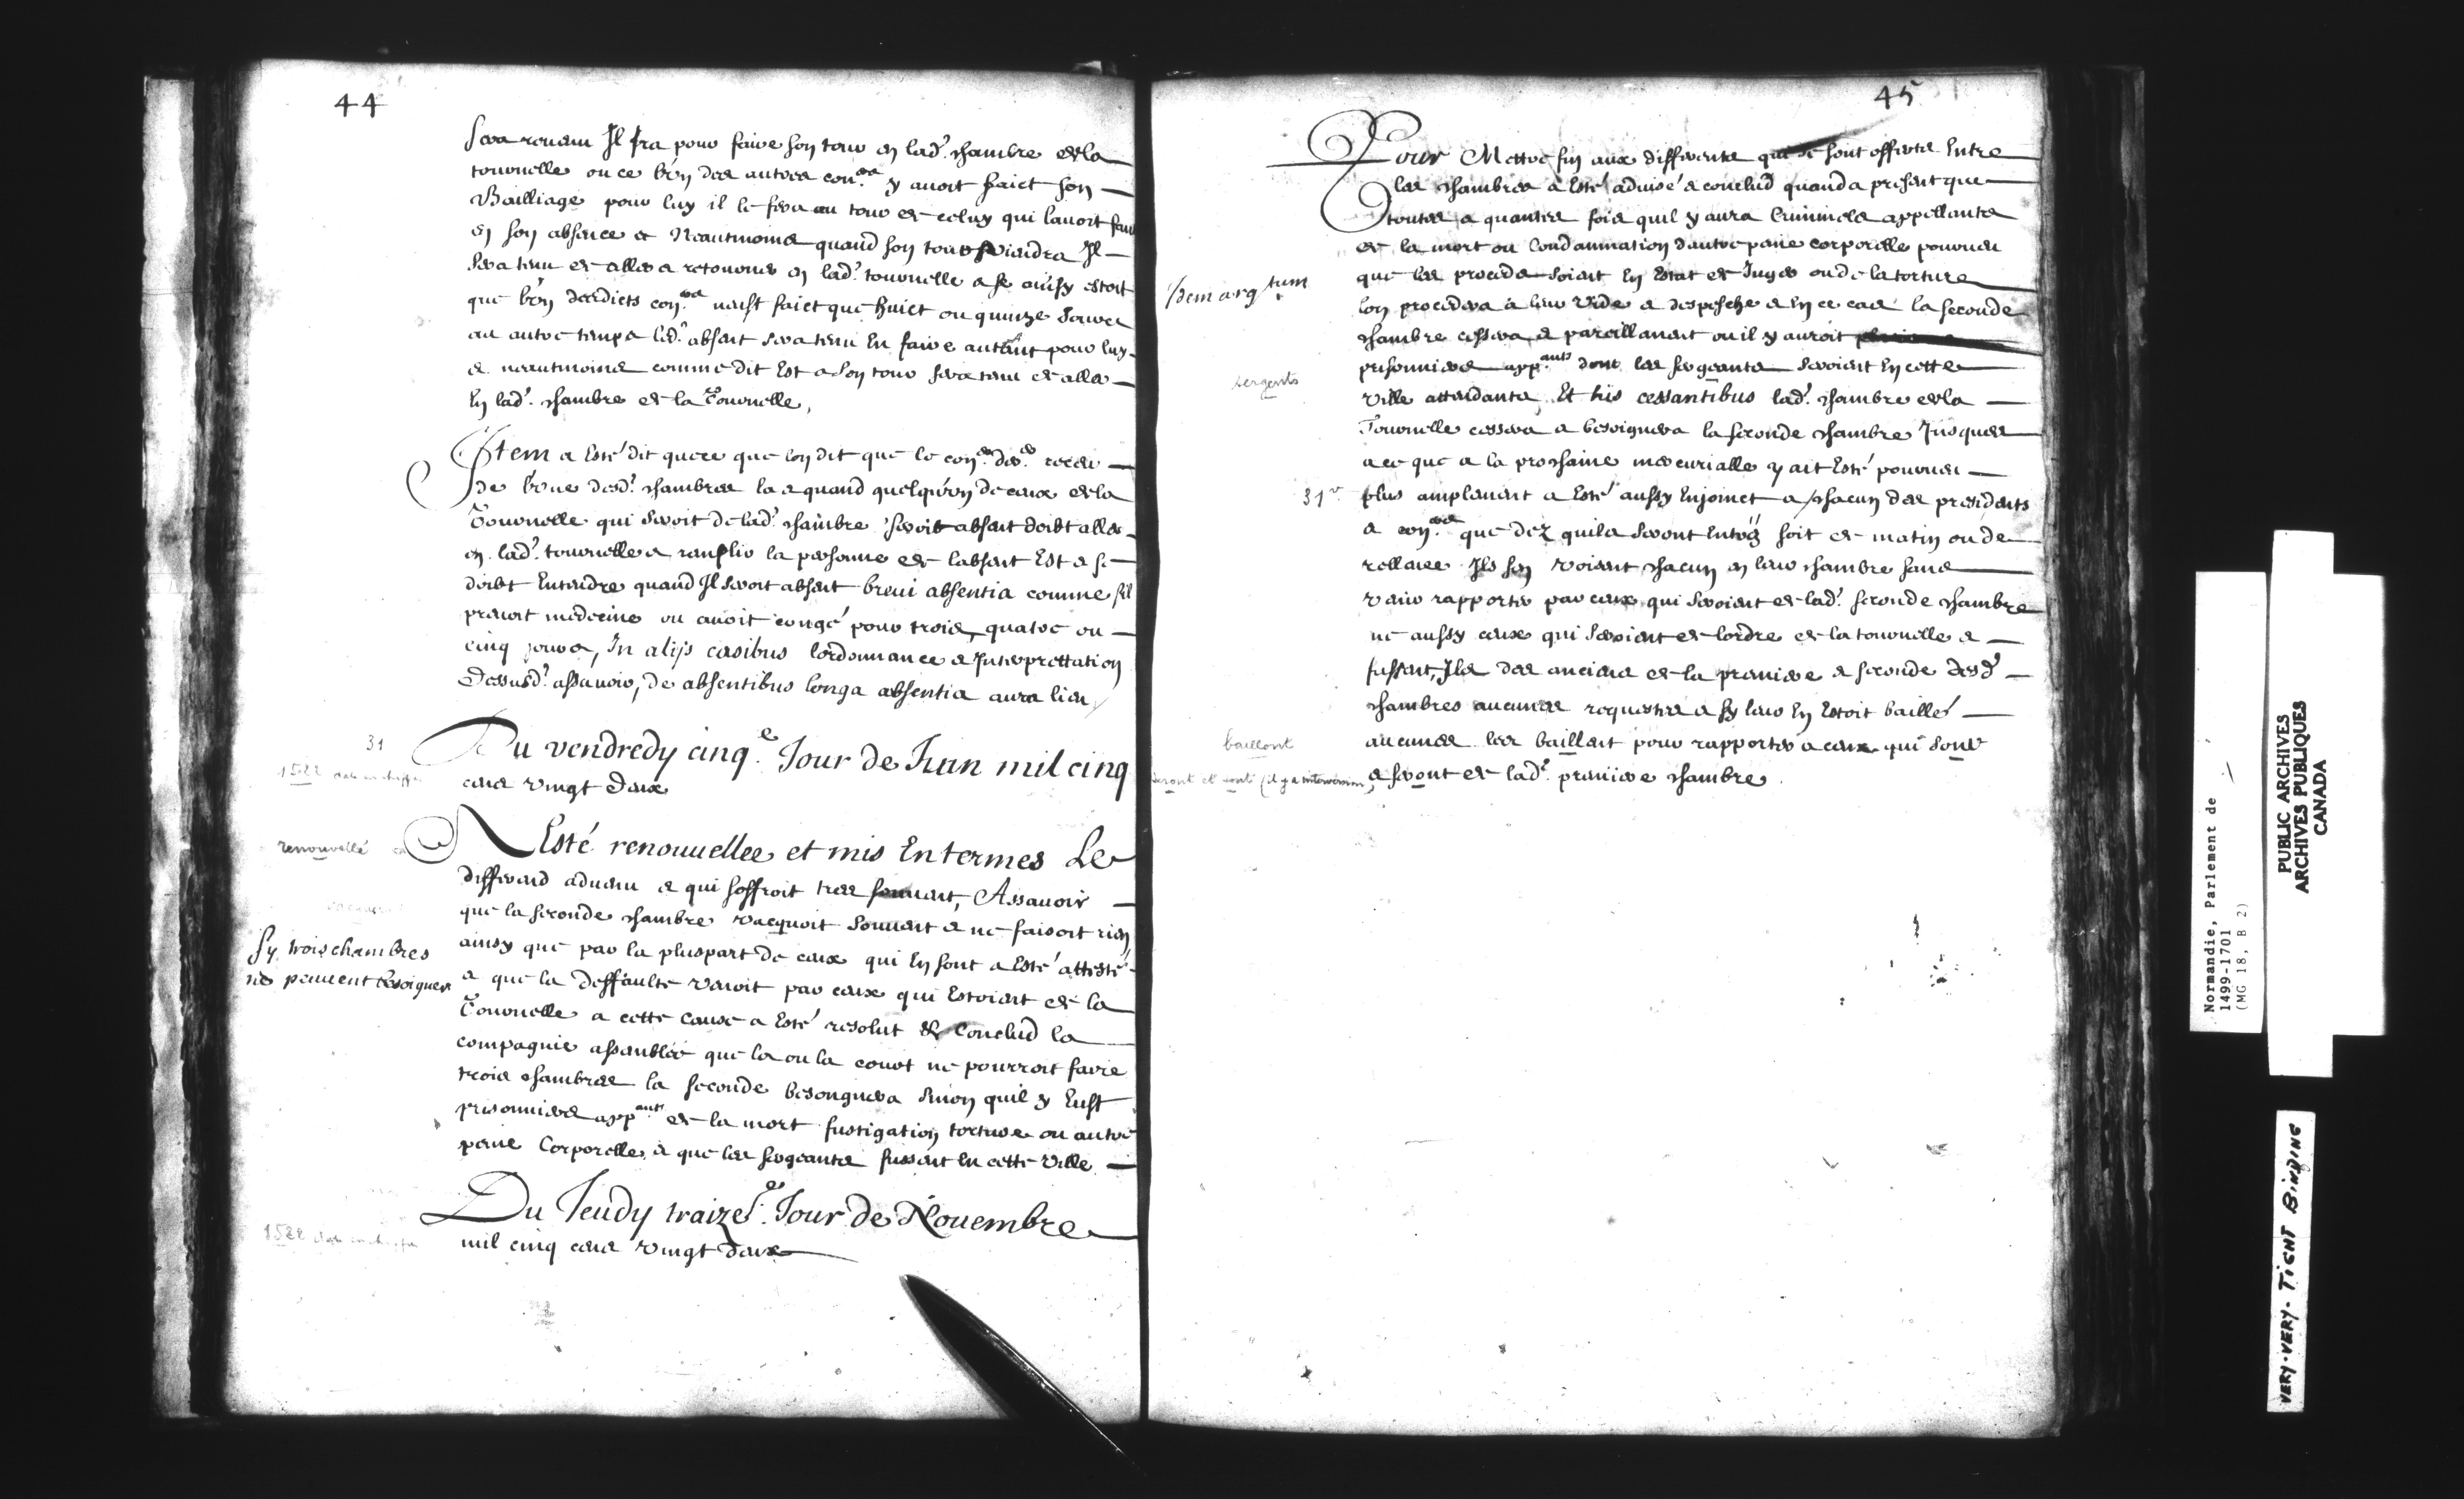 44
sera reuenu Il Ira pour faire son tour en lad. chambre de la
tournelle ou ce bien des autres con.ers y auoit faict son
Bailliage pour luy il le fera au tour de celuy qui lauoit faict
en son absence et Neantmoins quand son tour viendra Il
sera tenu de aller a retourner en lad. tournelle & se ainsy estoit
que l'un desdicts con.ers neust faict que huict ou quinze Jours
au autre temps led. absent sera tenu En faire autant pour luy
& neantmoins comme dit Est a son tour sera tenu de aller
En lad. chambre de la Tournelle,
Item a Esté dit que ce que lon dit que le con.er
de l'une desd. chambres la & quand quelqu'un de ceux de la
Tournelle qui seroit de lad. chambre seroit absent doibt aller
en lad. tournelle & remplir la personne de labsent Est & se
doibt Entendre quand Il seroit absent breui absentia comme sil
prenoit médecine ou auoit congé pour trois, quatre ou
cinq jours, In alijs casibus lordonnance & Interprettation
Dessusd. assauoir, de absentibus longa absentia aura lieu
31
Du vendredy cinq.e Jour de Juin mil cinq
1522 date en chiffre
cens vingt deux
renouvellé
A Esté renouuellee et mis En termes Le
differend aduenu & qui soffroit tres souuent, Assauoir
que la seconde chambre vacquoit souuent & ne faisoit rien
Sy trois chambres
ne peuuent besoigner
ainsy que par la pluspart de ceux qui En sont a Esté attesté
& que la deffaulte venoit par ceux qui Estoient de la
Tournelle a cette cause a Esté resolut & Conclud la
compagnie assemblée que la ou la court ne pourroit faire
trois chambres la seconde besongnera sinon quil y Eust
prisonniers app.ants de la mort fustigation torture ou autre
peine Corporelle & que les sergeants fussent En cette Ville
Du Jeudy traize.e Jour de Nouembre
1522 date en chiffre
mil cinq cens vingt deux
45
Pour Mettre fin aux differents qui se sont offerts Entre
les chambres a Esté aduisé & conclud quand a present que
toutes & quantes fois quil y aura Criminels appellants
de la mort ou Condamnation dautre peine corporelle pourueu
que les proceds soient En Estat de Juger ou de la torture
Idem arg tum
lon procedera à leur vide & despesche & En ce cas la seconde
chambre cessera & pareillement ou il y auroit
prisonniers app.ants dont les sergeants seroient En cette
sergents
ville attendants, Et his cessantibus lad. chambre de la
Tournelle cessera & besoignera la seconde chambre Jusques
a ce que a la prochaine mercurialle y ait Esté pourueu
31 v
plus amplement a Esté aussy Enjoinct a chacun des presidents
& con.ers que dez quils seront Entrés soit de matin ou de
rellevée Ils sen voisent chacun en leur chambre sans
venir rapporter par ceux qui seroient de lad. seconde chambre
ne aussy ceux qui seroient de lordre de la tournelle &
fussent Ils des anciens de la premiere & seconde desd.
chambres aucunes requestes & sy leur En Estoit baillé
baillent
aucunes les baillent pour rapporter a ceux qui sont
seront et sont (il y a interversion)
& seront de lad. premiere chambre
Normandie, Parlement de
1499-1701
(MG 18, B 2)
PUBLIC ARCHIVES
ARCHIVES PUBLIQUES
CANADA
VERY-VERY-TIGHT BINDING